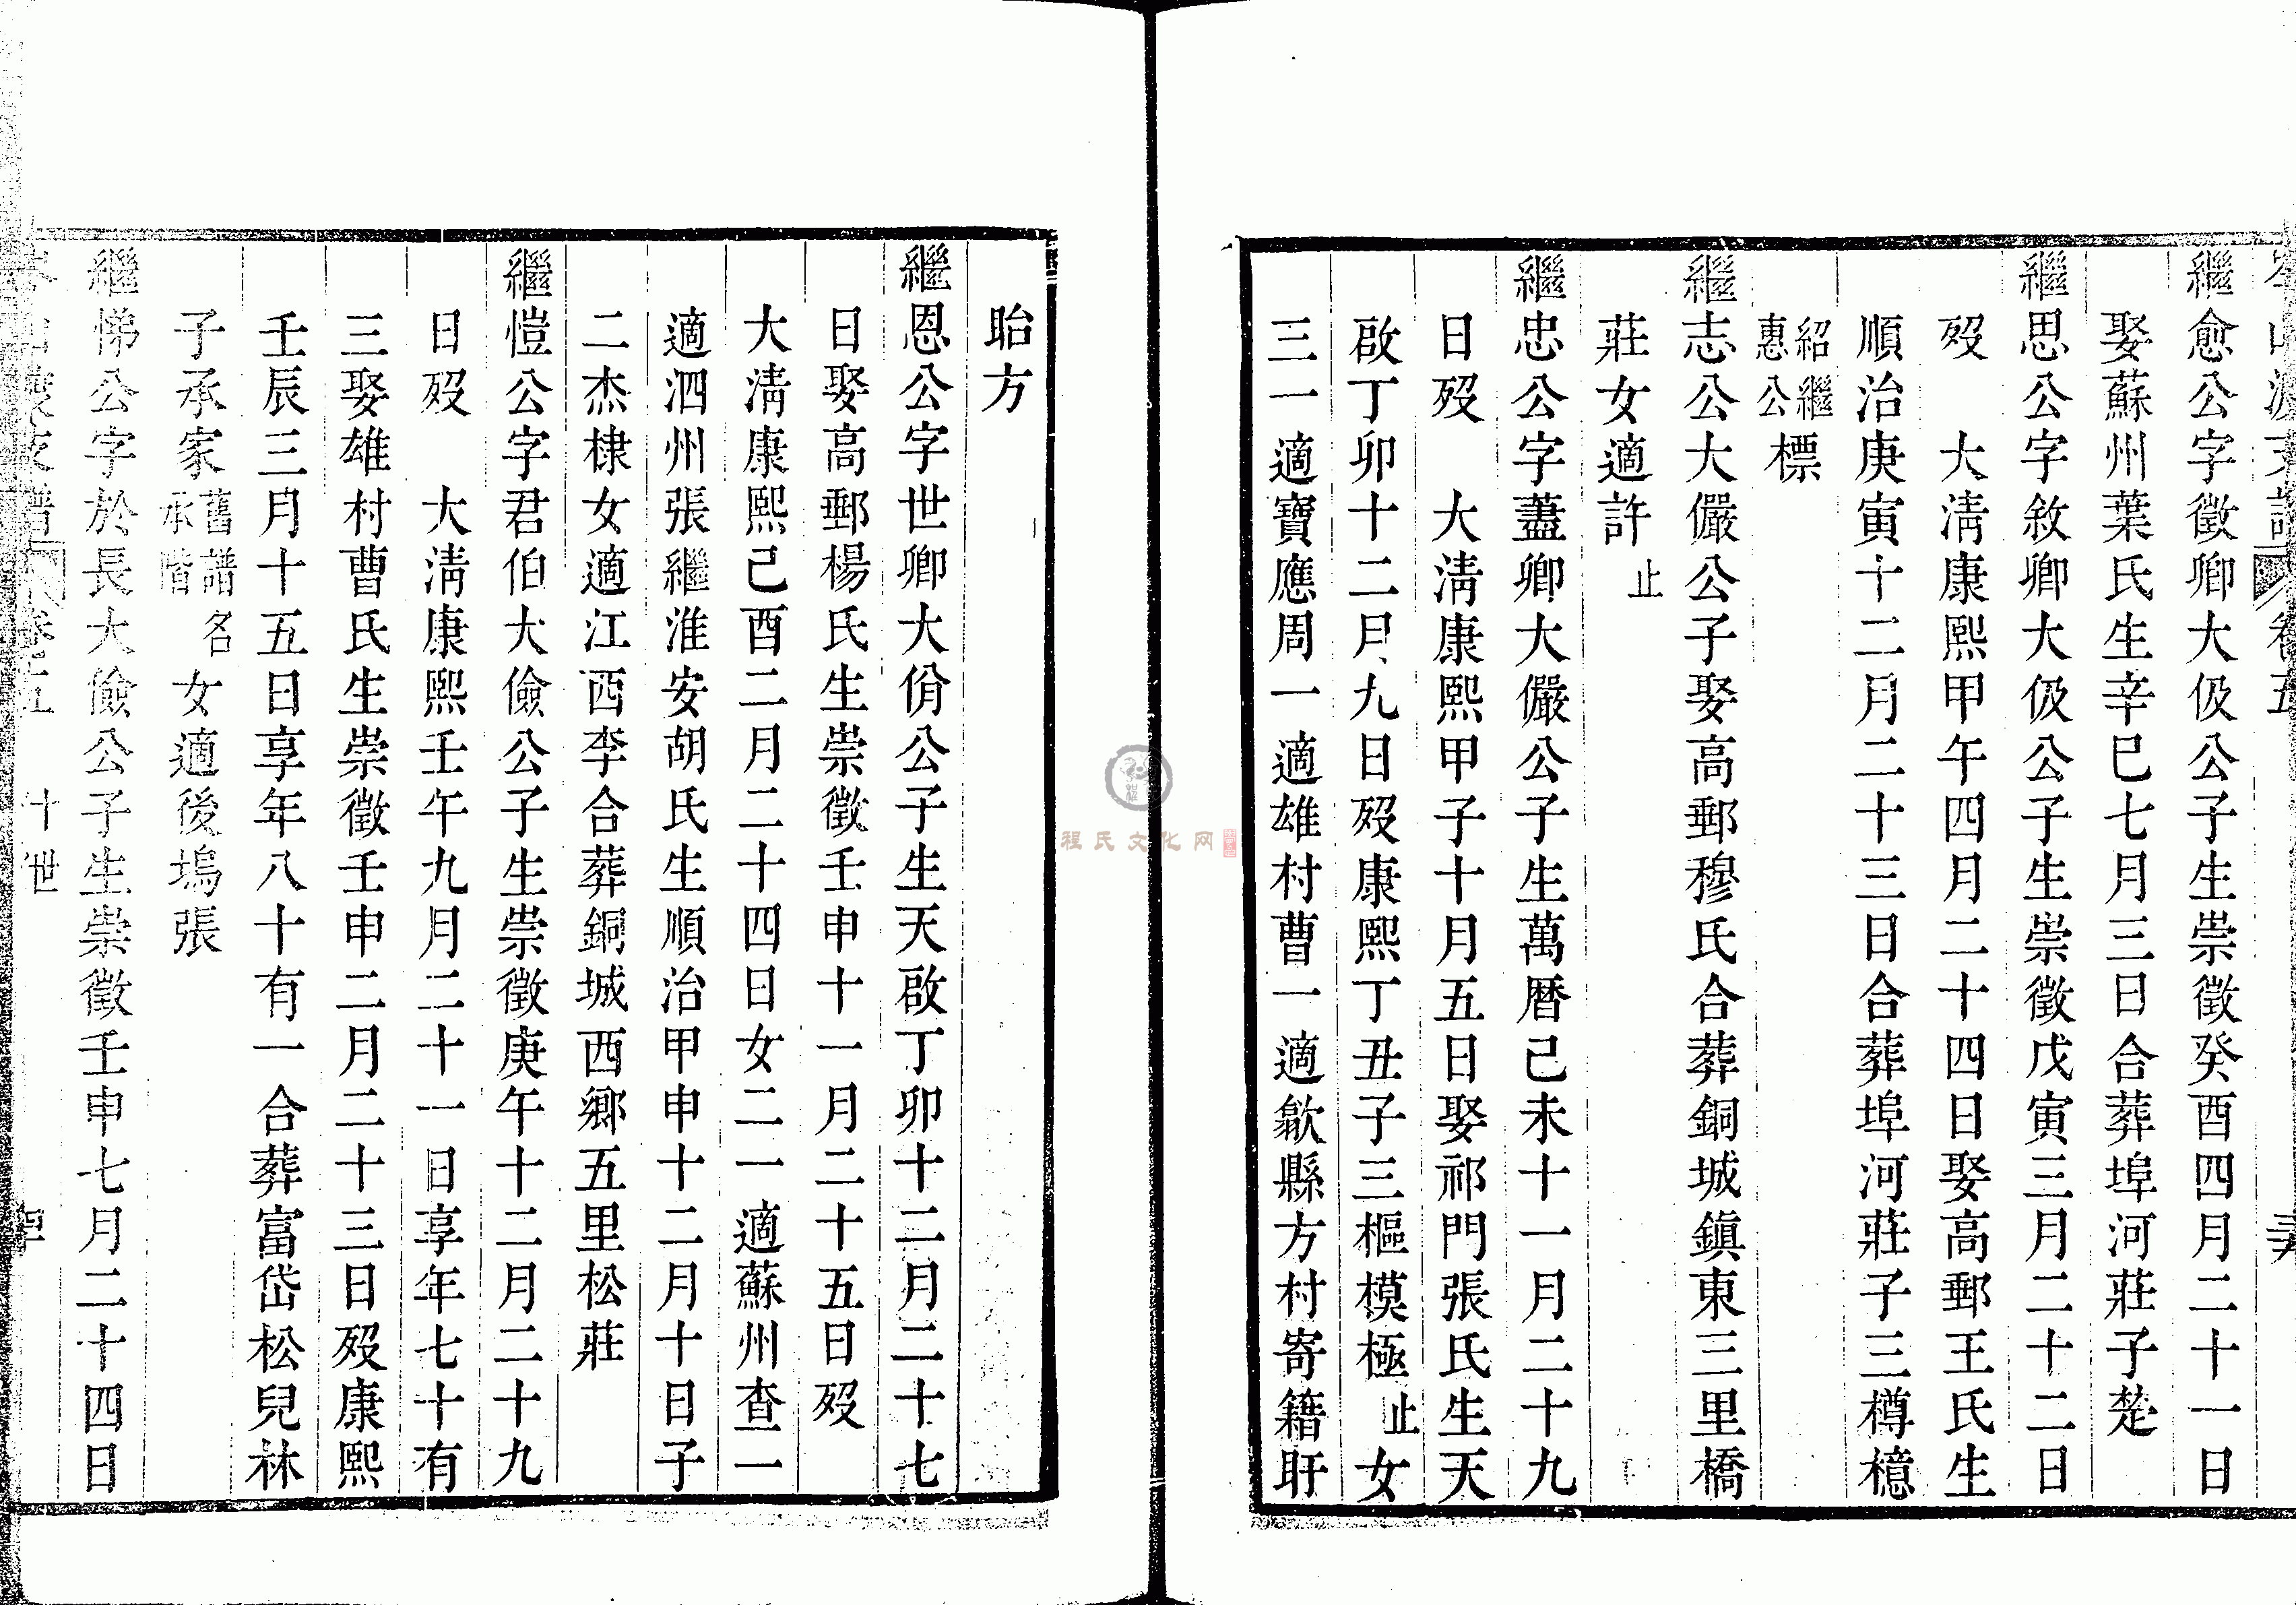 繼愈公字徵卿大伋公子生崇徵癸酉四月二十一日
娶蘇州葉氏生辛巳七月三日合葬埠河莊子楚
繼思公字敘卿大伋公子生崇徵戊寅三月二十二日
歿　大淸康熙甲午四月二十四日娶高郵王氏生
順治庚寅十二月二十三日合葬埠河莊子三樽檍
紹繼惠公標
繼志公大儼公子娶高郵穆氏合葬銅城鎭東三里橋
莊女適許止
繼忠公字藎卿大儼公子生萬曆己未十一月二十九
日歿　大淸康熙甲子十月五日娶祁門張氏生天
啟丁卯十二月九日歿康熙丁丑子三樞模極止女
三一適寶應周一適雄村曹一適歙縣方村寄籍盱
眙方
繼恩公字世卿大佾公子生天啟丁卯十二月二十七
日娶高郵楊氏生崇徵壬申十一月二十五日歿
大淸康熙己酉二月二十四日女二一適蘇州查一
適泗州張繼淮安胡氏生順治甲申十二月十日子
二杰棣女適江西李合葬銅城西鄉五里松莊
繼愷公字君伯大儉公子生崇徵庚午十二月二十九
日歿　大淸康熙壬午九月二十一日享年七十有
三娶雄村曹氏生崇徵壬申二月二十三日歿康熙
壬辰三月十五日享年八十有一合葬富岱松兒林
子承家舊譜名承階女適後塢張
繼悌公字於長大儉公子生崇徵壬申七月二十四日
十世
程氏文化网